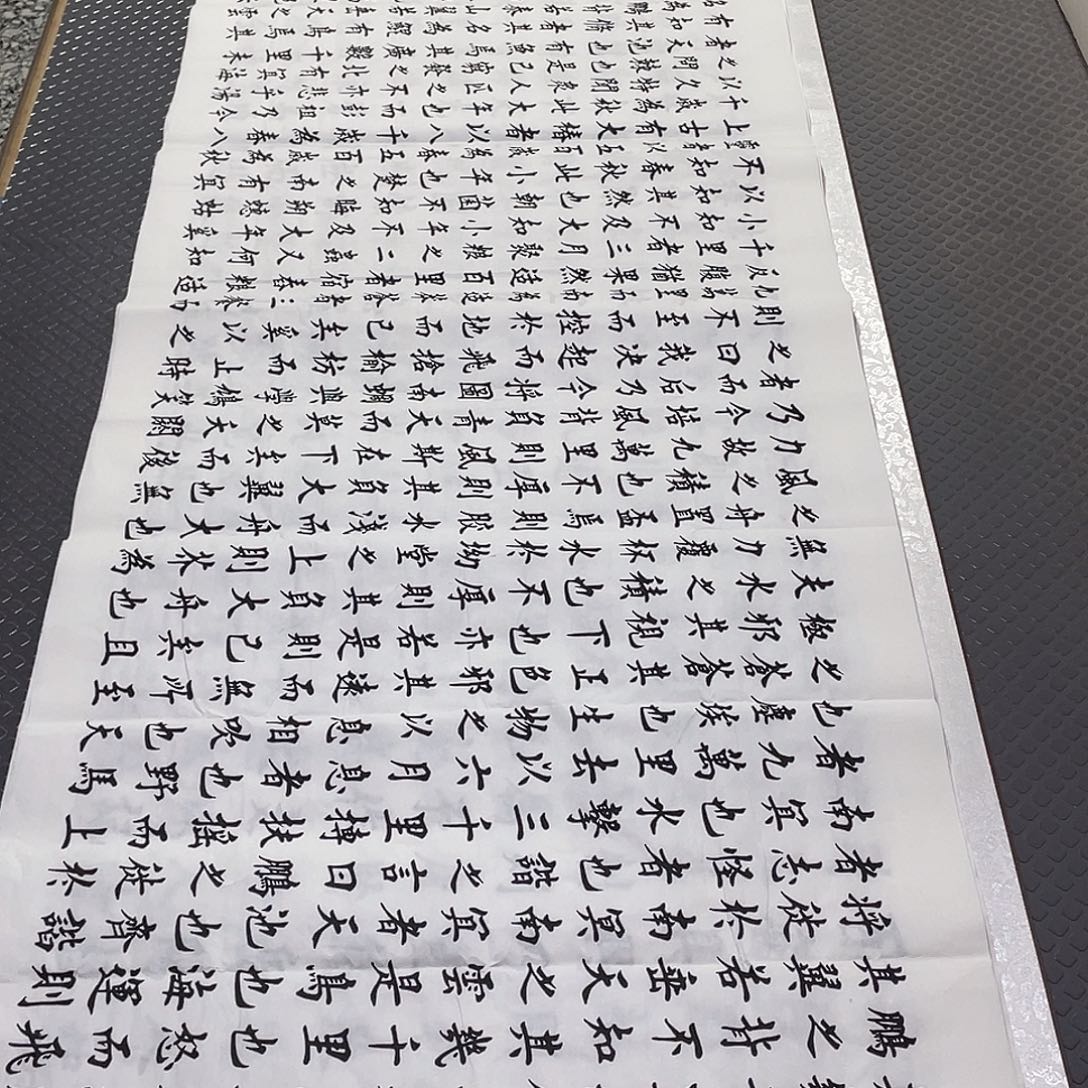 鵬之背不知其幾千里也怒而飛
其翼若垂天之雲是鳥也海運則
將徙於南冥南冥者天池也齊諧
者志怪者也諧之言曰鵬之徙於
南冥也水擊三千里摶扶搖而上
者九萬里去以六月息者也野馬
也塵埃也生物之以息相吹也天
之蒼蒼其正色邪其遠而無所至
極邪其視下也亦若是則已矣且
夫水之積也不厚則其負大舟也
無力覆杯水於坳堂之上則芥為
之舟置杯焉則膠水淺而舟大也
風之積也不厚則其負大翼也無
力故九萬里則風斯在下矣而後
乃今培風背負青天而莫之夭閼
者而后乃今將圖南蜩與學鳩笑
之曰我決起而飛搶榆枋而止時
則不至而控於地而已矣奚以之
九萬里而南為適莽蒼者三餐而
反腹猶果然適百里者宿舂糧適
千里者三月聚糧之二蟲又何知
小知不及大知小年不及大年奚
以知其然也朝菌不知晦朔蟪蛄
不知春秋此小年也楚之南有冥
靈者以五百歲為春五百歲為秋
上古有大椿者以八千歲為春八
千歲為秋此大年也而彭祖乃今
以久特聞眾人匹之不亦悲乎湯
之問棘也是已窮髮之北有冥海
者天池也有魚焉其廣數千里未
有知其脩者其名為鯤有鳥焉其